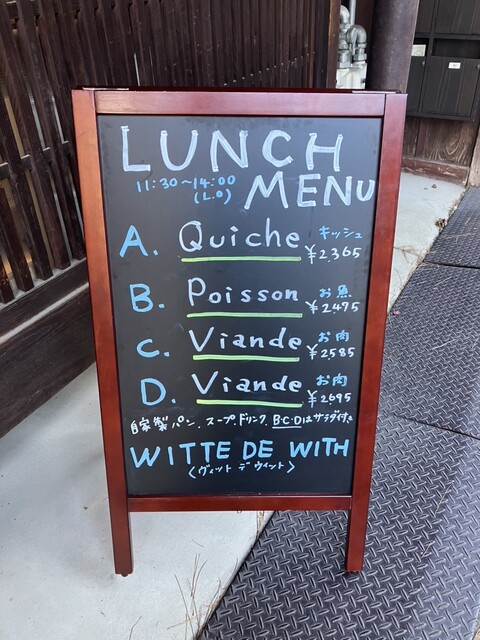 LUNCH
11:30~14:00
(L.O)
MENU
A. Quiche キッシュ
¥2,365
B. Poisson お魚
¥2475
C. Viande お肉
¥2585
D. Viande お肉
¥2695
自家製パン、スープ、ドリンク、B・C・Dはサラダ付き
WITTE DE WITH
<ヴィット デ ウィット>